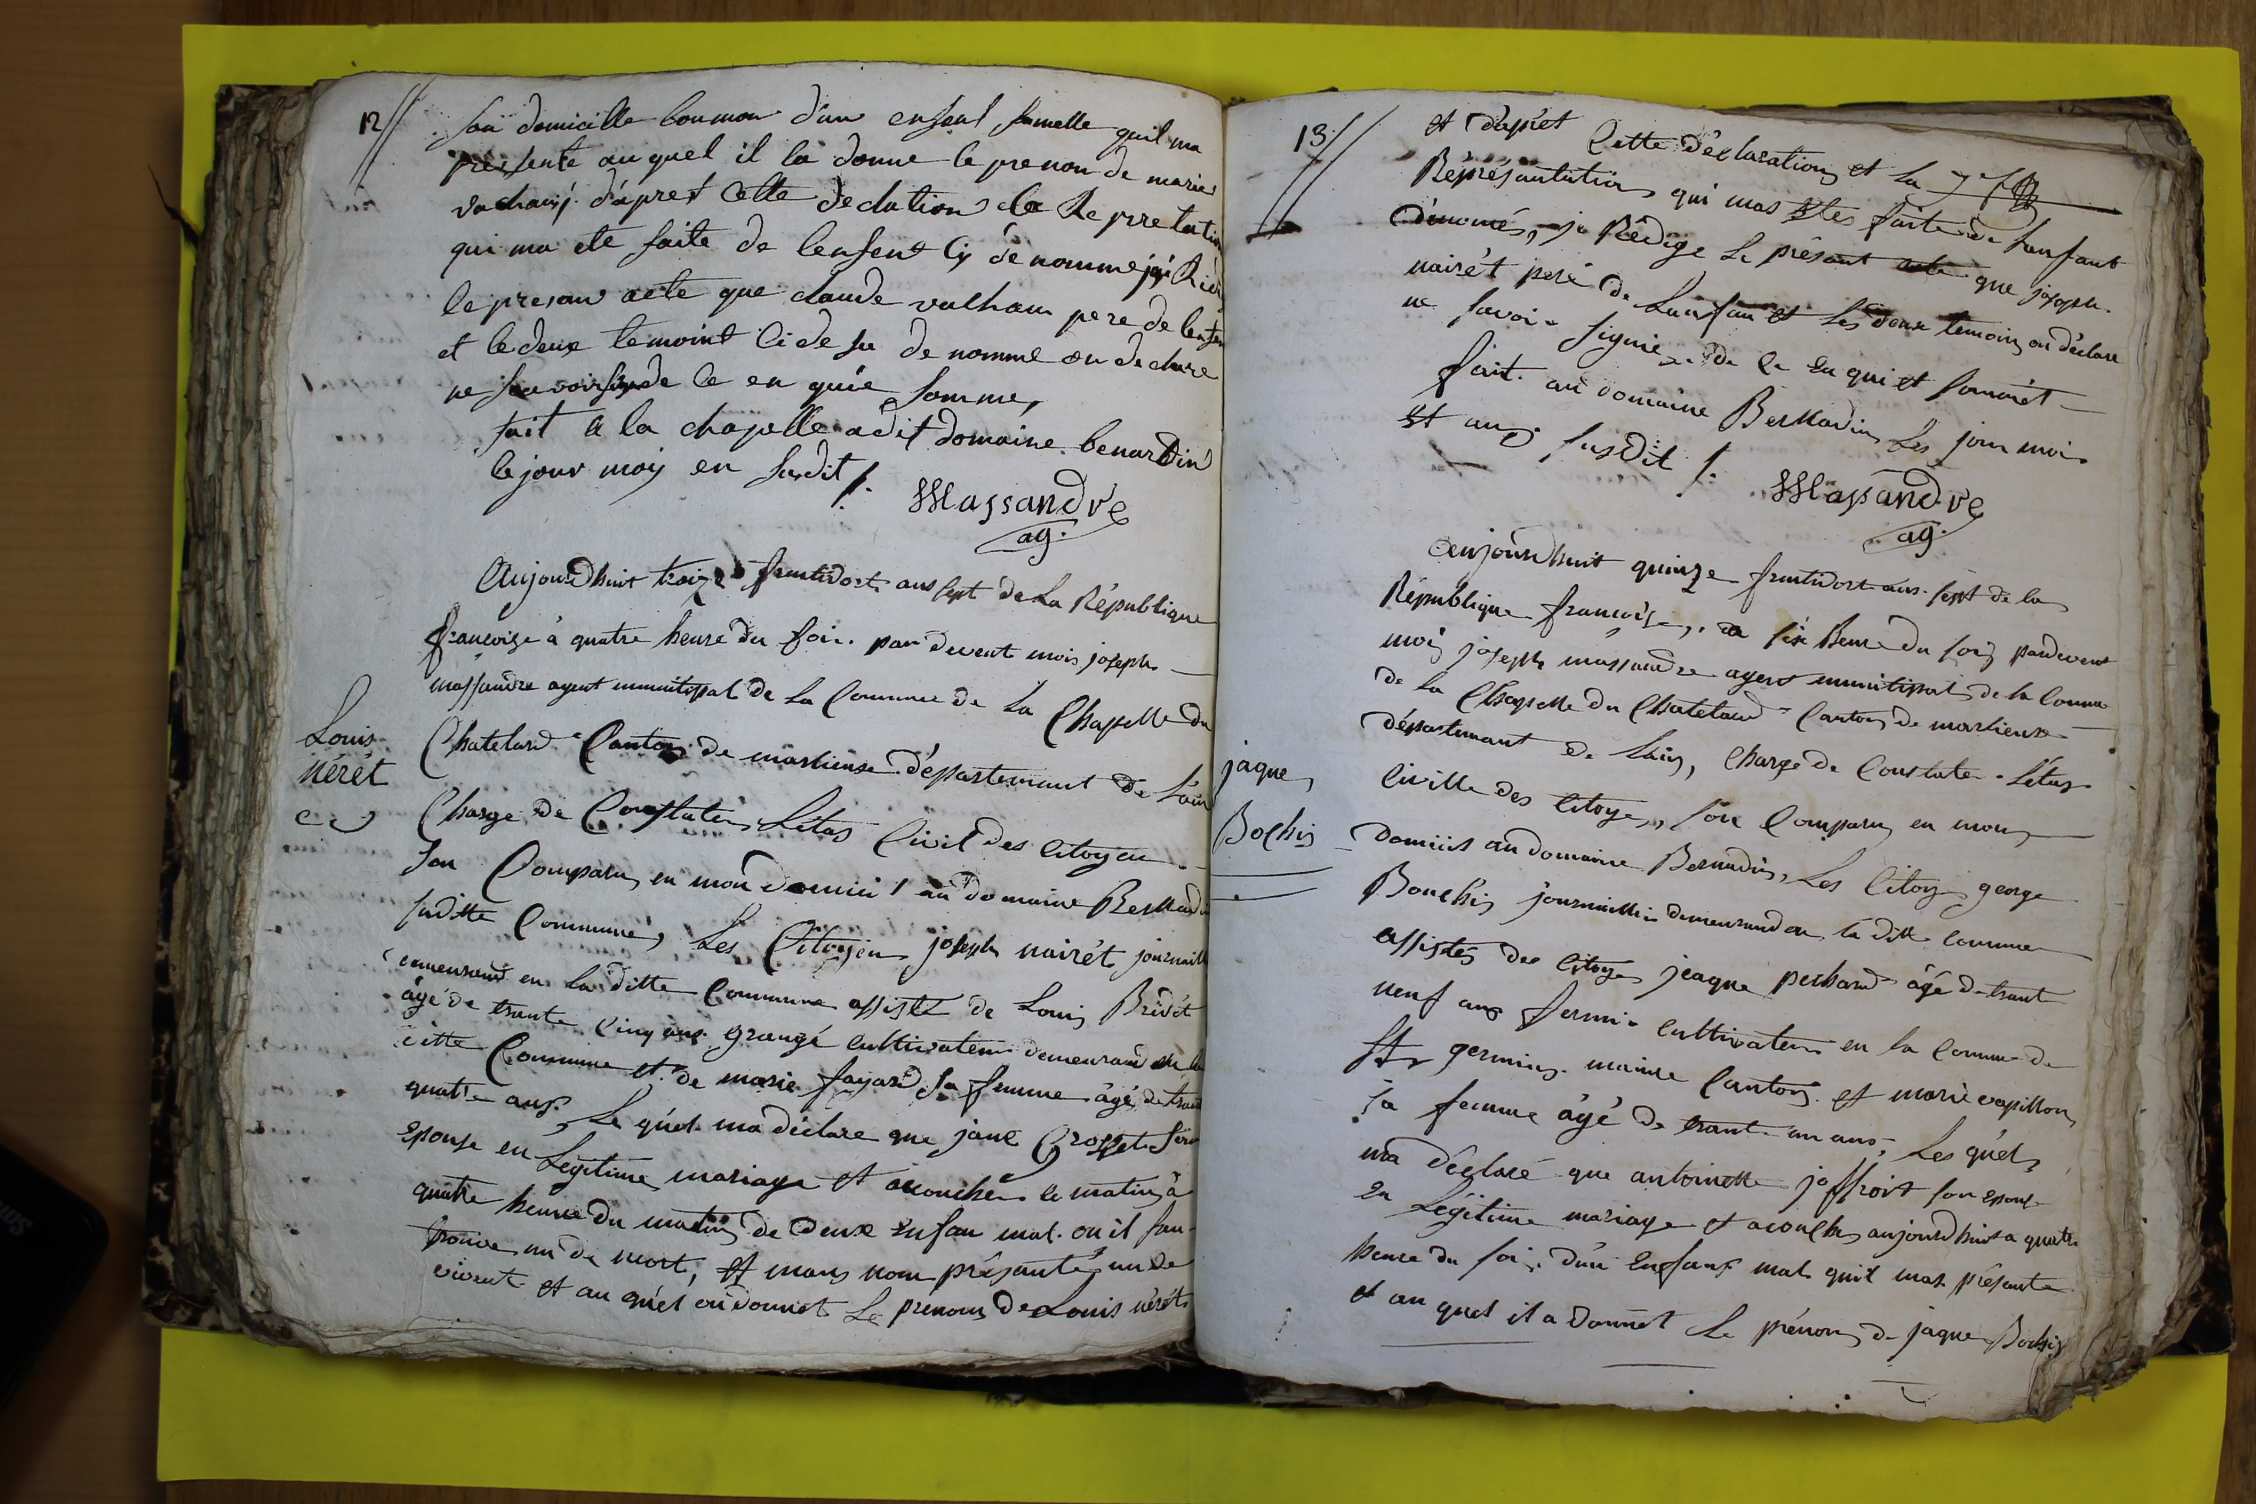 12
son domicille bonmon d'un enfent femelle quil ma
presente auquel il la donne le prenon de marie
vachanj. d'apres cette declation de la Represtation
qui ma ete faite de lenfent Cy de nomme jai Rédi
le presans acte que claude valham pere de lenfen
et le deux temoint Ci de su de nomme on declare
ne scavoir de ce en quie somme,
fait a la chapelle adit domaine benardin
le jour moij en susdit /.
Massandre
ag.
Aujourdhuit traize fruntidort ans sept de La République
francoize à quatre heure du soir. par devent mois joseph
massandre agent munitispal de La Commune de La Chapelle du
Chatelard Canton de marlieuse département de Lain
Charge de Constater Létas Civil des Citoyen
Louis
nérét
son Comparu en mon domici l au domaine Bernardi
suditte Commune, Les Citoyen joseph nairét journailli
demeurand en La ditte Commune assistz de Louis Bridét
âgé de trante Cinq ans grangé Cultivateur demeurand en la
ditte Commune et de marie fayard sa femme âgé de trant
quatre ans, Le quel ma déclare que jane Grosset son
Epouse en Légitime mariage et acouchée ce matin à
quatre heure du matin de deux Enfan mal. ou il san
trouve un de mort, et mans nom présanté un de
vivent et au quel on donnet Le prenom de Louis nérét
13
et d'aprét Cette déclaration et la
Réprésantation qui mas Etes faite de Lanfant
dénomés, je Rédige Le présant acte que joseph
nairét peré de Lanfan et Les deux temoin on déclare
ne savoir signié. de Ce Enquiet sommét
fait au domaine Bernardin Les jour moi
et ans susdit /.
Massandre
ag.
aujourdhuit quinze fruntidort ans sept de la
République francoise, a six heure du soir pardevent
moi joseph massandre agent munitispal de la Commune
de La Chapelle du Chatelard Canton de marlieux
départemant de Lain, Chargé de Constater Létas
Civille des Citoyen, son Comparu en mon
jaque
Bochin
domicil au domaine Bernardin, Les Citoyen george
Bouchin journaillier demeurand en la ditte Commune
assistés des Citoyen jeaque perhard âgé de trant
neuf ans fermie cultivateur en la Commune de
St germins maime Canton et marie vapillon
sa femme âgé de trant un ans, Les quél
ma déclaré que antoinette joffroit son Epouse
En Légitime mariage et acouche aujourdhuit a quatre
heure du soir d'un Enfant mal quil mas présante
et au quel il a donnét Le prénom de jaque Bochin